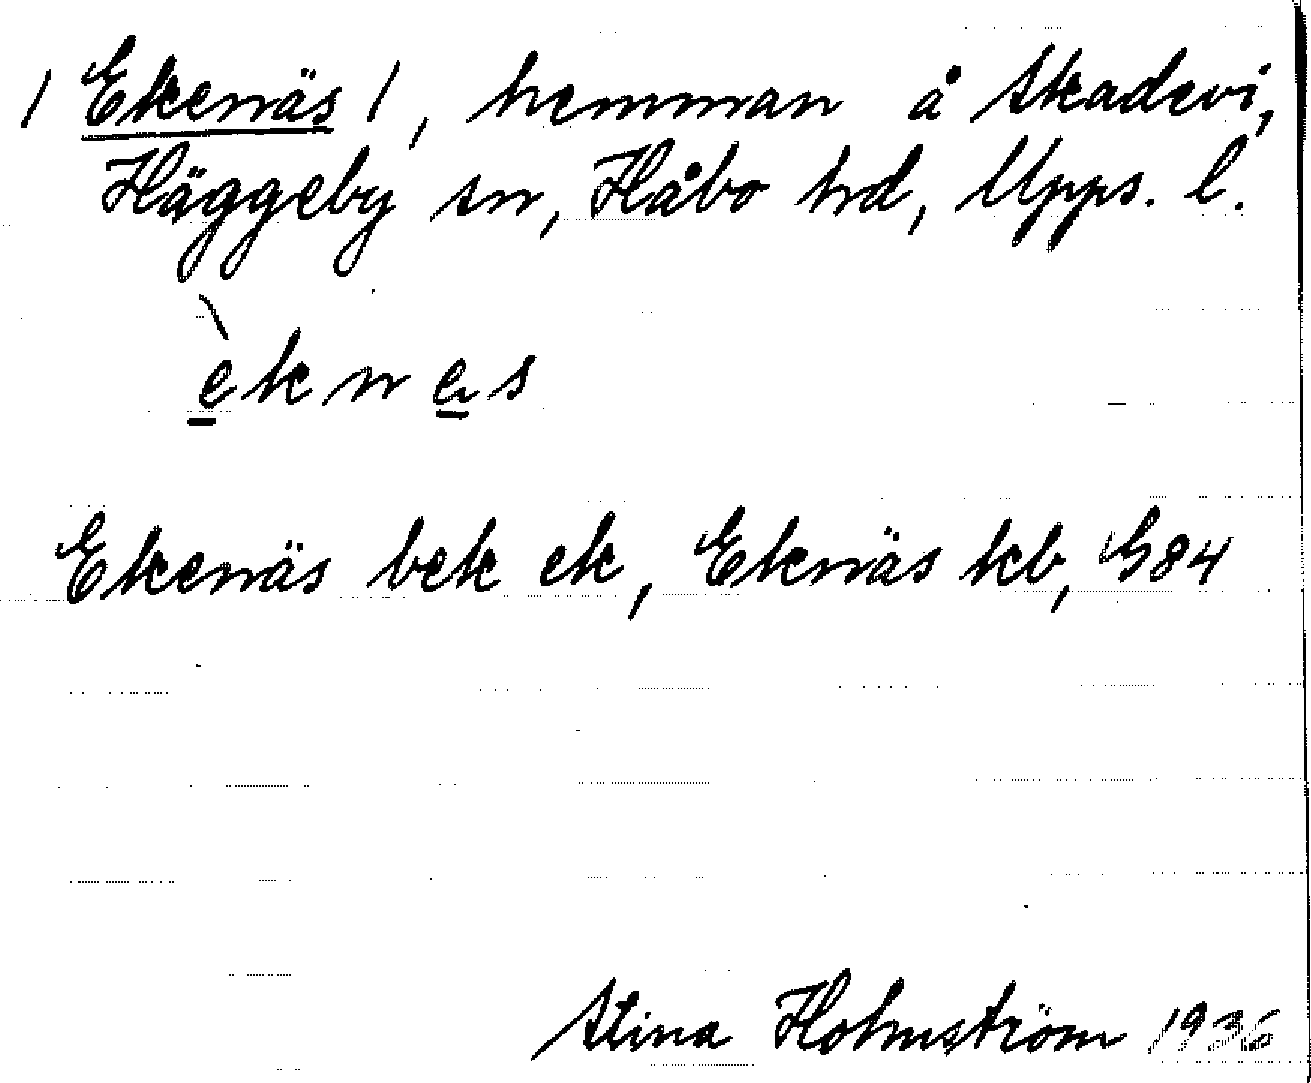 / Ekenäs /, hemman å Skadevi,
Häggeby sn, Håbo hd, Upps. l.
èknes
Ekenäs bek ek, Eknäs kb, G84
Stina Holmström 1936